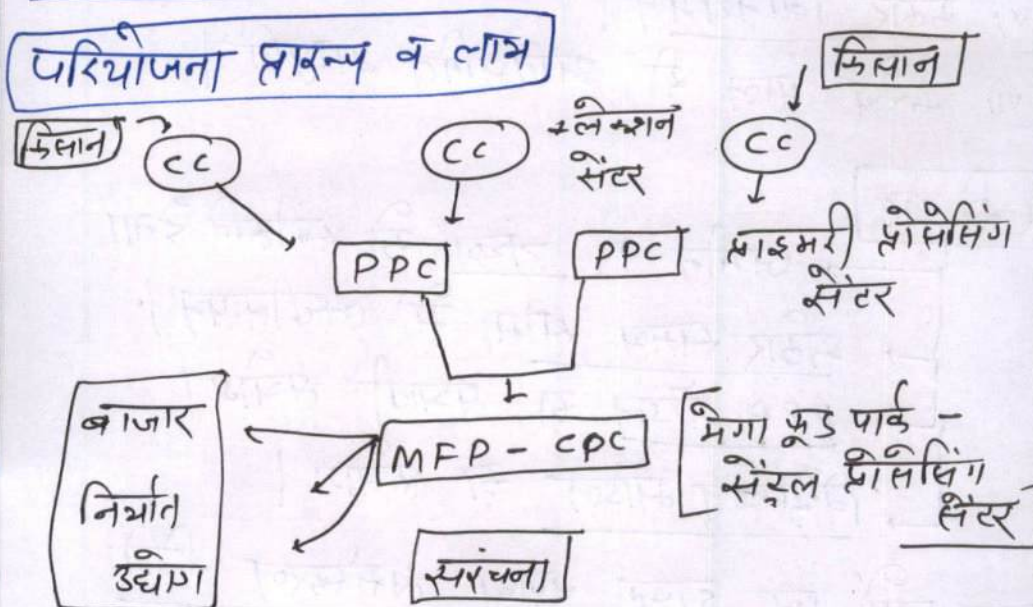 परियोजना प्रारूप व लाभ
किसान
किसान
CC
CC
कलेक्शन
सेंटर
CC
PPC
PPC
प्राइमरी प्रोसेसिंग
सेंटर
बाजार
निर्यात
उद्योग
MFP - CPC
मेगा फूड पार्क -
सेंट्रल प्रोसेसिंग
सेंटर
सरंचना